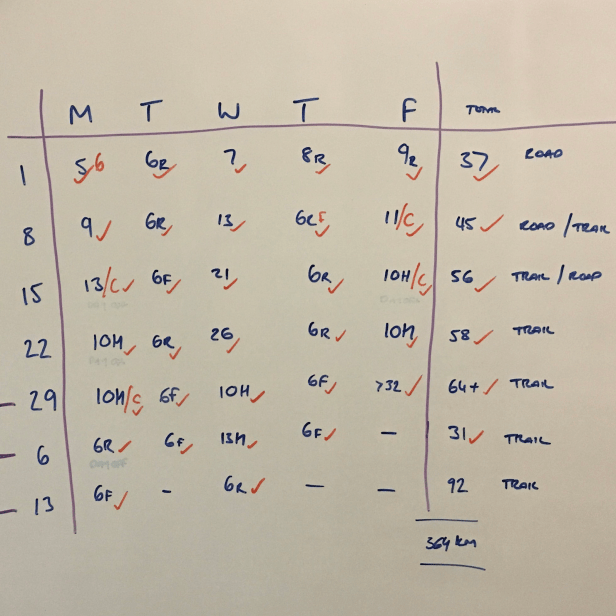 M T W T F TOTAL
1 5 6 6R 7 8R 9R 37 ROAD
8 9 6R 13 6R F 11/C 45 ROAD/TRAIL
15 13/C 6F 21 6R 10H/C 56 TRAIL/ROAD
22 10H 6R 26 6R 10H 58 TRAIL
29 10H/C 6F 10H 6F >32 64+ TRAIL
6 6R 6F 13H 6F – 31 TRAIL
13 6F – 6R – – 92 TRAIL
364 KM